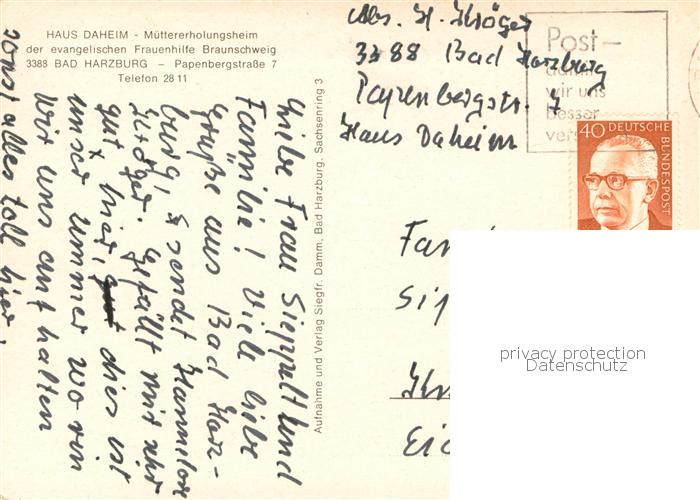 HAUS DAHEIM - Müttererholungsheim
der evangelischen Frauenhilfe Braunschweig
3388 BAD HARZBURG – Papenbergstraße 7
Telefon 28 11
Abs. H. Kröger
3388 Bad Harzburg
Papenbergstr. 7
Haus Daheim
Post-
wir uns
besser
40 DEUTSCHE
BUNDESPOST
Liebe Frau Sieppelt und
Familie! Viele liebe
Grüße aus Bad Harz-
burg, sendet Hannelore
Kröger. Gefällt mir sehr
gut hier, dies ist
unser Zimmer wo rin
wir uns auf halten
sonst alles toll hier.
Aufnahme und Verlag Siegfr. Damm, Bad Harzburg, Sachsenring 3
Fam
Sip
Ei
privacy protection
Datenschutz